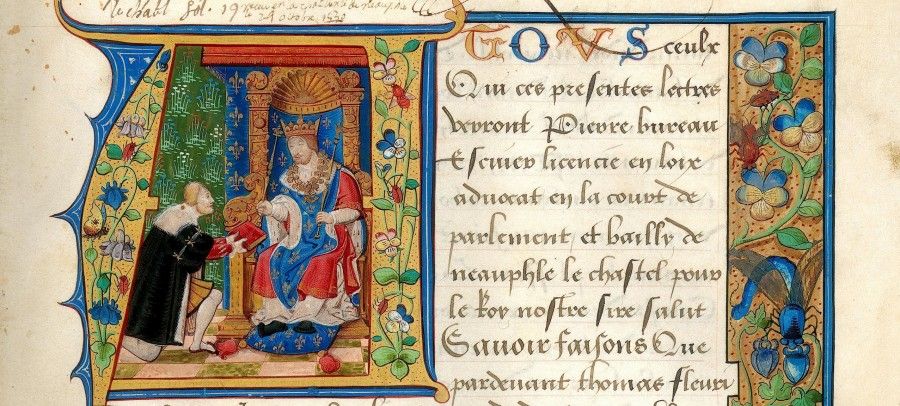 fol. 19
A TOVS ceulx
Qui ces presentes lectres
verront Pierre bureau
Escuier licencie en loix
advocat en la court de
parlement et bailly de
neauphle le chastel pour
le Roy nostre sire salut
Savoir faisons Que
pardevant thomas fleuri